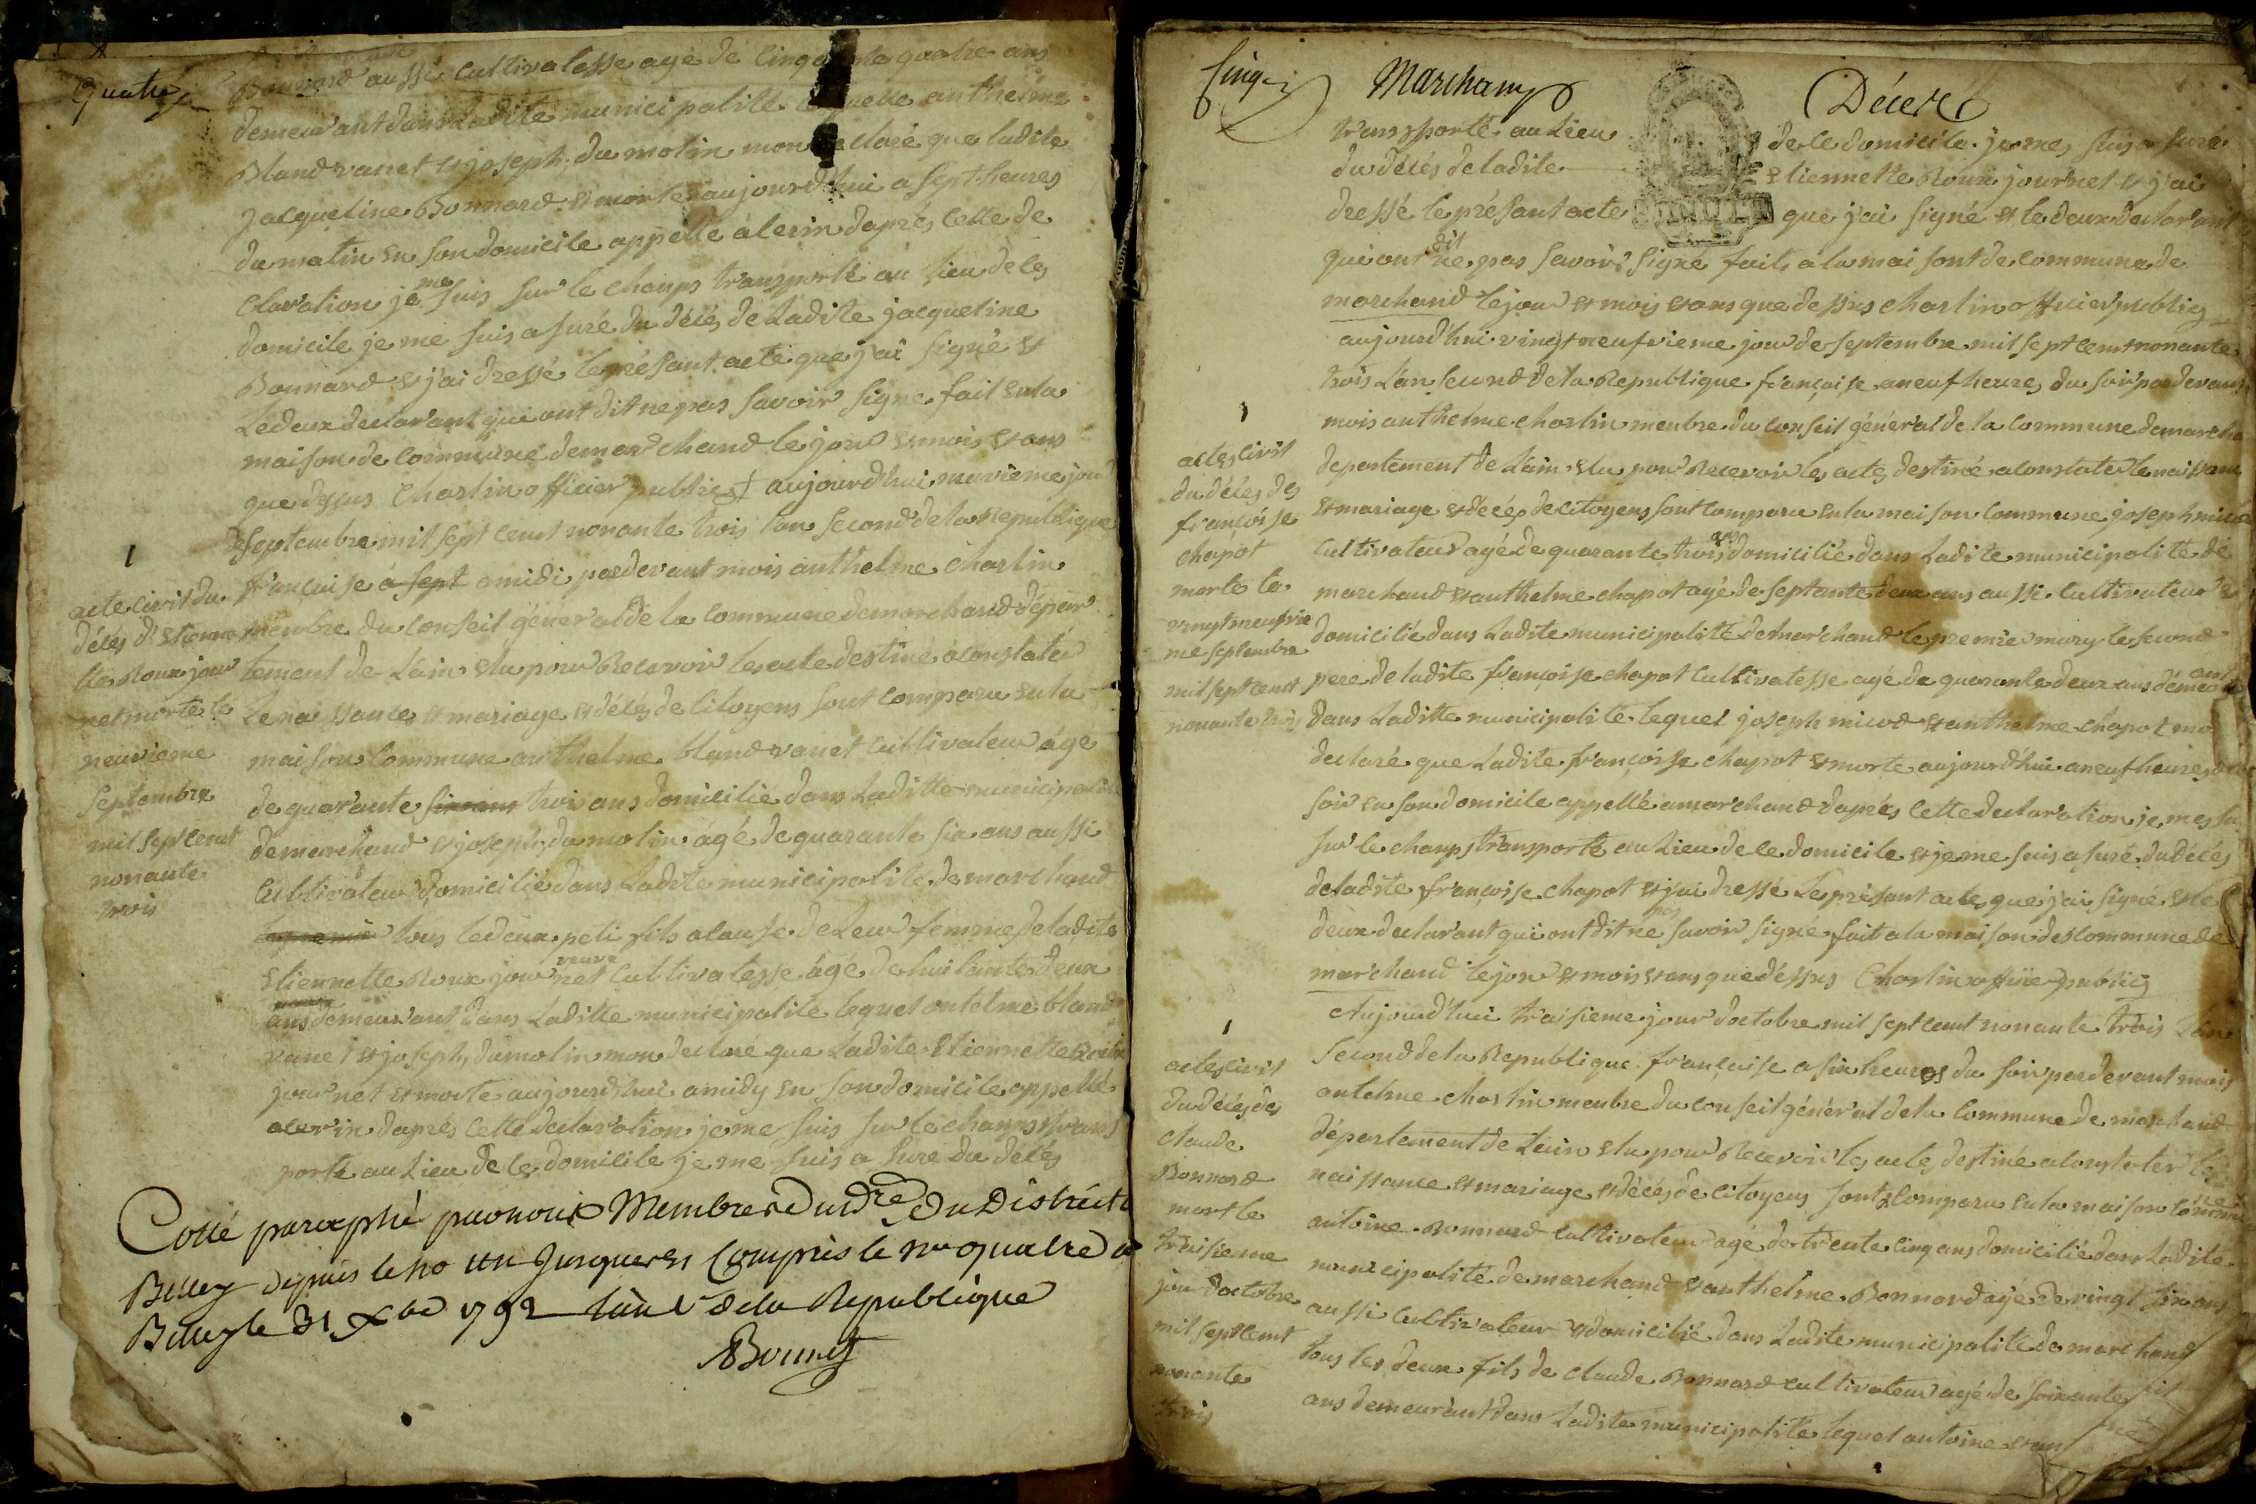 quatre
Bonnard aussi cultivatesse agé de cinquante quatre ans
demeurant dans Ladite municipalité lequelle anthelme
Bland vanet et joseph du molin mon declaré que ladite
jacqueline Bonnard et morte aujourd'hui a sept heures
du matin en son domicile appellé alerin daprés cette de
claration je me suis sur le champs transporté au lieu de ces
domicile je me suis asuré du décés de Ladite jacqueline
Bonnard et j'ai dressé le présant acte que j'ai signé et
Le deux declarant qui ont dit ne pas savoir signe fait enla
maison de commune de marchand le jour et mois et ans
que dessus Charlin officier public aujourd'hui neuvieme jour
de septembre mil sept cent nonante trois l'an second de la Republique
francaise a sept a midi par devant mois anthelme Charlin
membre du conseil géneral de la commune de marchand dépar
tement de Lain elu pour Recevoir les acte destiné a constater
Le naissances et mariage et décés de citoyens sont comparu enla
maison commune anthelme bland vanet cultivateur âgé
de quarante six ans trois ans domicilie dans Laditte municipalité
de marchand et joseph du molin âgé de quarante six ans aussi
Cultivateur domicilié dans Ladite municipalité de marchand
tous le deux peti fils a cause de Leur femme de ladite
veuve
Etiennette Roux journet cultivatesse âgé de huitante deux
ans demeurant dans Laditte municipalite lequel antelme bland
vanet et joseph du molin mon declaré que Ladite Etiennette Roux
journet et morte aujourd'hui a midy en son domicile appellé
alerin daprés cette declaration je me suis sur le champs trans
porté au Lieu de ce domicile je me suis a suré du décés
1
acte civil du
décés d'Etienne
tte Roux jour
net morte le
neuvieme
septembre
mil sept cent
nonante
trois
Cotté paraphé par nous Membre du dre du District
Belley depuis le no un jusques et Compris le no quatre
Belley le 31 xbre 1792 l'an 1er de la Republique
Bonnet
Cinq
Marchamp
Décex
transporté au Lieu de ce domicile je mes suis a suré
du décés de ladite Etiennette Roux journet et j'ai
dressé le présant acte que j'ai signé et le deux declarant
qui ont dit ne pas savoir signé fait a la maisont de commune de
marchand le jour et mois et ans que dessus charlin officier public
aujourd'hui vingt neufvieme jour de septembre mil sept cent nonante
trois L'an second de la Republique françoise a neuf heures du soir par devant
mois anthelme charlin menbre du conseil général de la commune de marcha
departement de Lain elu pour Recevoir les actes destiné a constater le naissance
et mariage et décés de citoyens sont comparu enla maison commune joseph micod
cultivateur agé de quarante trois ans domicilié dans Ladite municipalité de
marchand et anthelme chapot agé de septante deux ans aussi cultivateur
domicilié dans Ladite municipalité de marchand le premie mary le second
pere de ladite françoise chapot cultivatesse agé de quarante deux ans demeurant
dans Laditte municipalité lequel joseph micod et anthelme chapot mon
declaré que Ladite françoise chapot et morte aujourd'hui a neuf heures du
soir en son domicile appellé a marchand daprés cette declaration je mes sui
sur le champs transporté au Lieu de ce domicile et je me suis a suré du décés
de ladite françoise chapot et j'ai dressé Le présant acte que j'ai signé et le
deux declarant qui ont dit ne pas savoir signé fait a la maison des commune de
marchand le jour et mois et ans que dessus Charlin officie public
Aujourd'hui traisieme jour d'octobre mil sept cent nonante trois L'an
second de la Republique françaises a six heures du soir par devant mois
antelme charlin menbre du conseil géneral de la commune de marchand
département de Lain elu pour Recevoir les actes destiné a constater le
naissance et mariage et décés de citoyens sont comparu enla maison commune
antoine Bonnard cultivateur agé de trente cinq ans domicilié dans Ladite
municipalité de marchand et anthelme Bonnard agé de vingt six ans
aussi cultivateur et domicilié dans Ladite municipalité de marchand
tous les deux fils de claude Bonnard cultivateur agé de soixante
ans demeurant dans Ladite municipalité lequel antoine et an
1
actes civil
du décés des
françoise
chapot
morte le
vingt neufvie
me septembre
mil sept cent
nonante trois
1
actes civil
du décés des
claude
Bonnard
mort le
traisieme
jour d'octobre
mil sept cent
nonante
trois